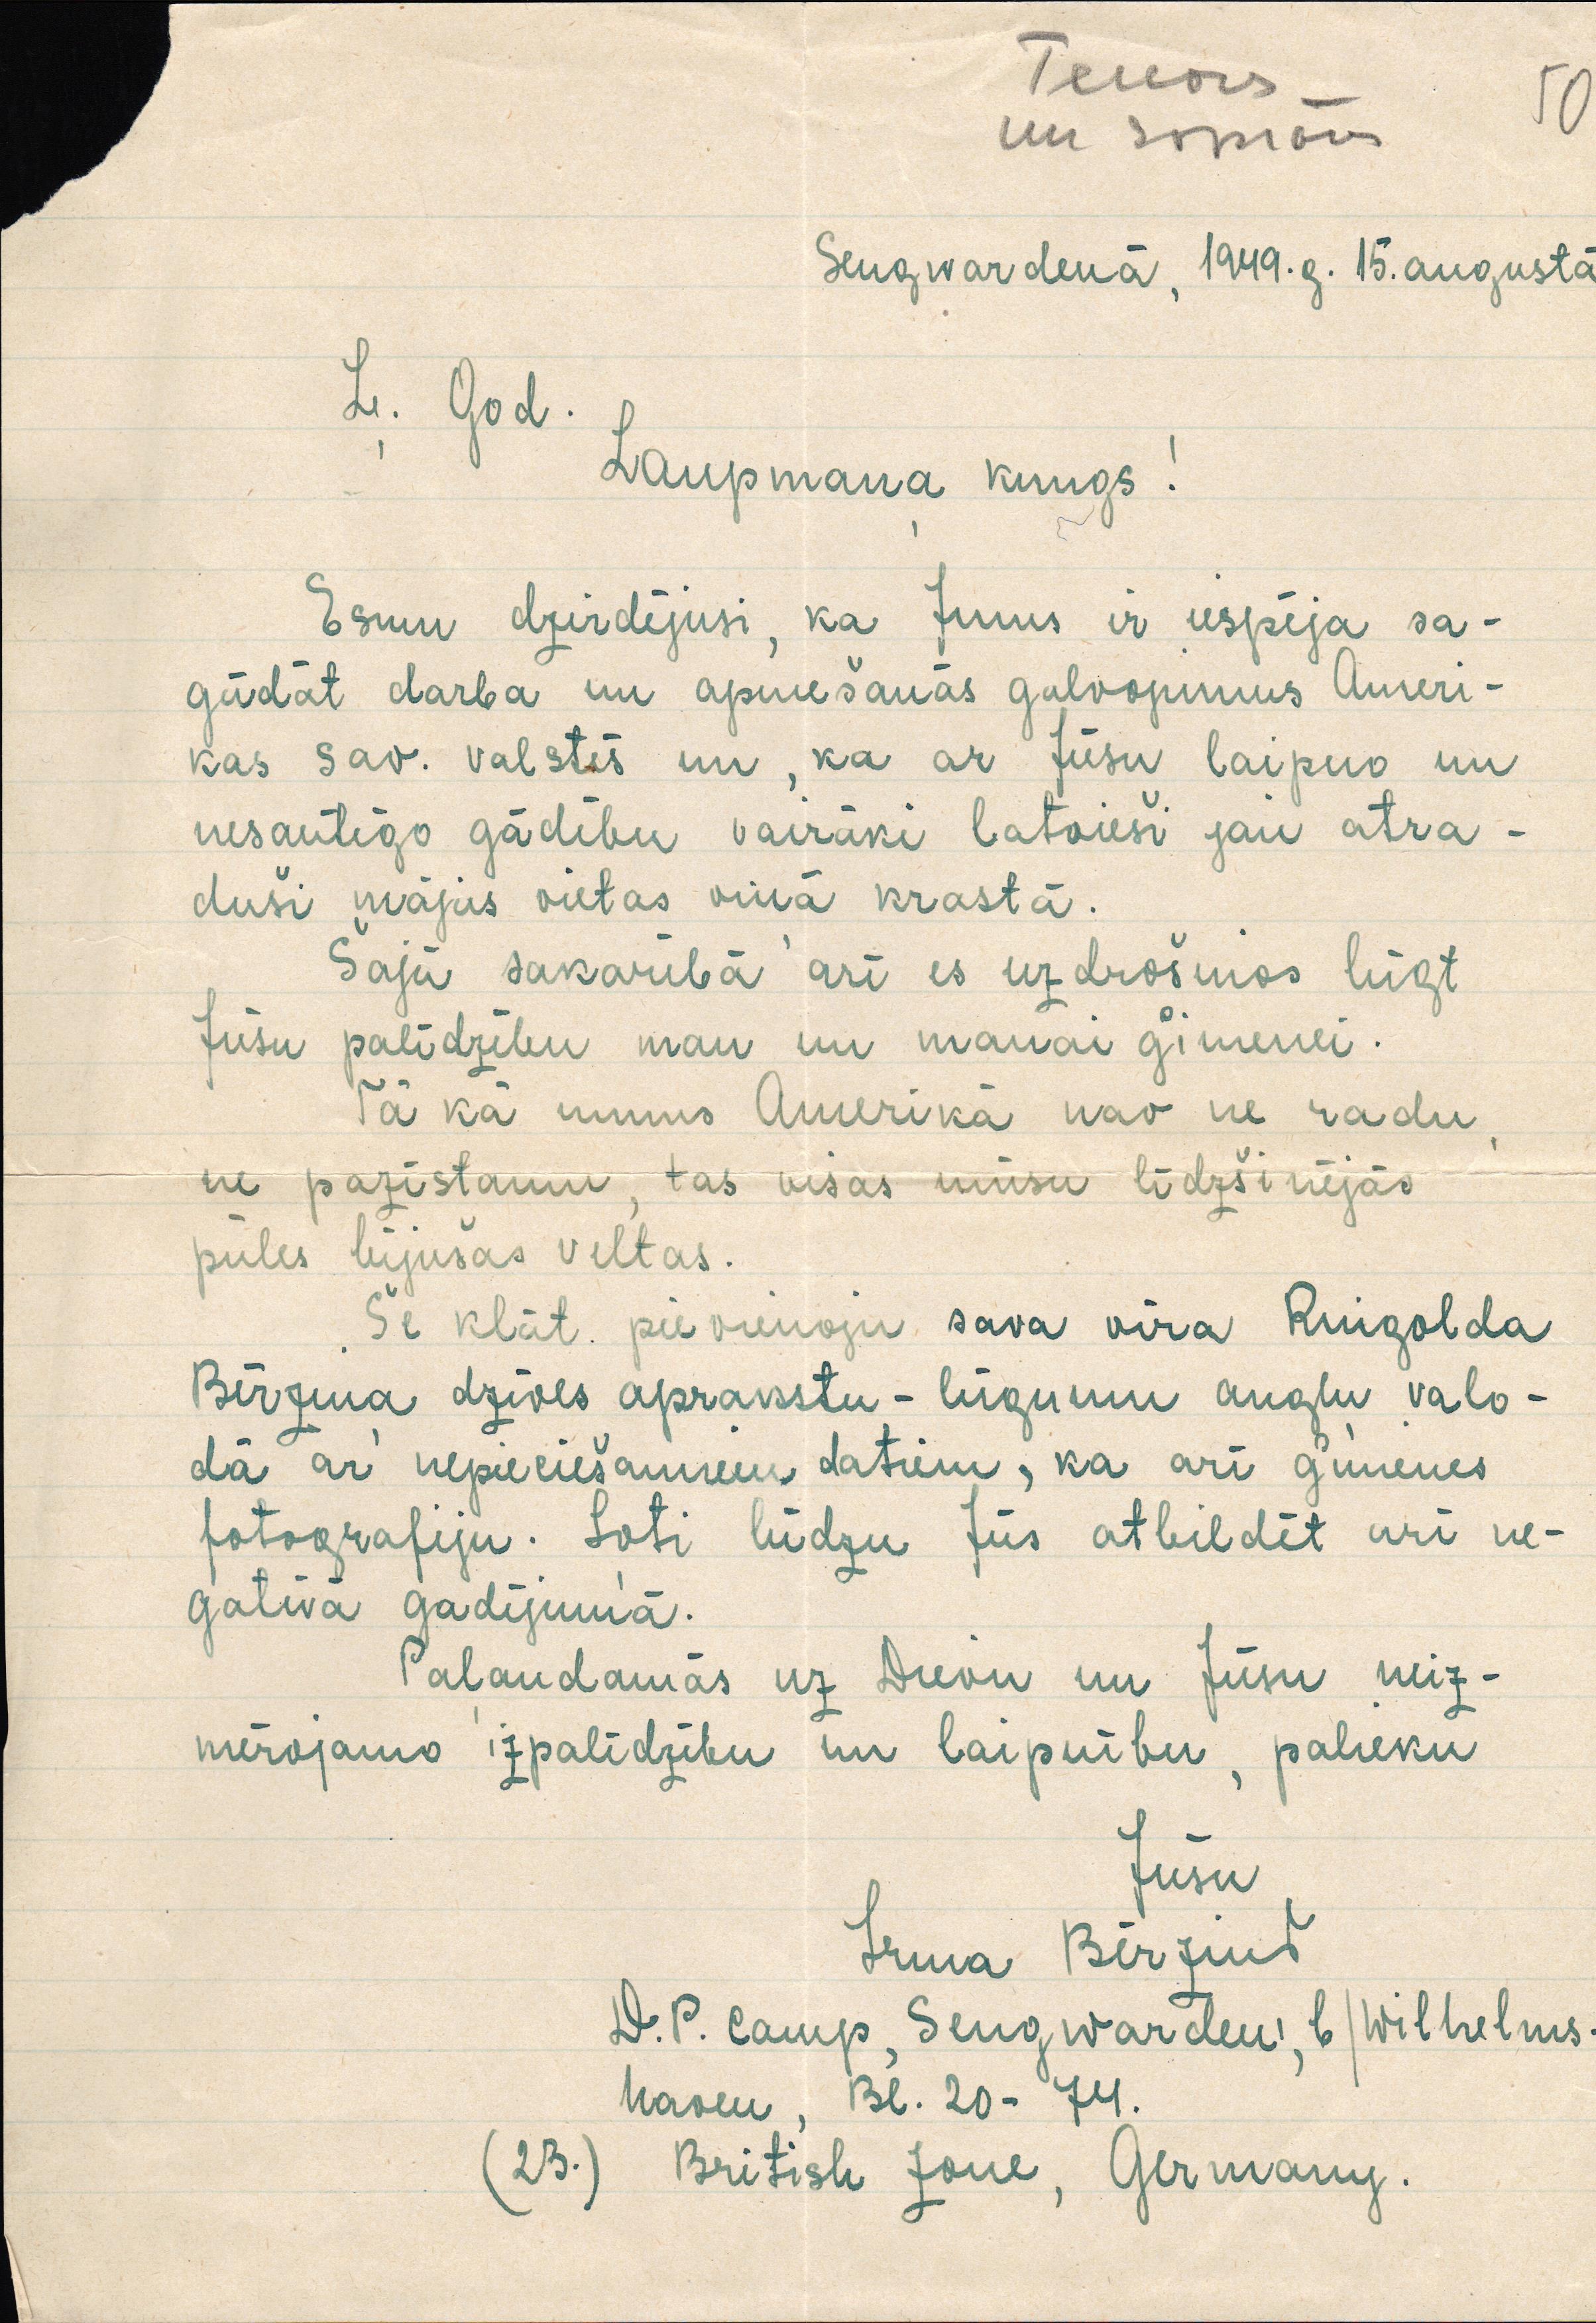 Tenors
un soprāns
50
Sengwardenā, 1949. g. 15. augustā
Ļ. God.
Laupmaņa kungs!
Esmu dzirdējusi, ka Jums ir iespēja sa-
gādāt darba un apmešanās galvojumus Ameri-
kas Sav. valstīs un, ka ar Jūsu laipno un
nesavtīgo gādību vairāki latvieši jau atra-
duši mājas vietas viņā krastā.
Šajā sakarībā arī es uzdrošinos lūgt
Jūsu palīdzību man un manai ģimenei.
Tā kā mums Amerikā nav ne radu,
ne pazīstamu, tas visas mūsu līdzšinējās
pūles bijušas veltas.
Še klāt. pievienoju sava vīra Ringolda
Bērziņa dzīves aprakstu - lūgumu angļu valo-
dā ar nepieciešamiem datiem, ka arī ģimenes
fotografiju. Ļoti lūdzu Jūs atbildēt arī ne-
gatīvā gadījumā.
Paļaudamās uz Dievu un Jūsu neiz-
mērojamo izpalīdzību un laipnību, palieku
Jūsu
Irma Bērziņš
D.P. Camp, Sengwarden, b/Wilhelms-
haven, Bl. 20 - 74.
(23.) British Zone, Germany.